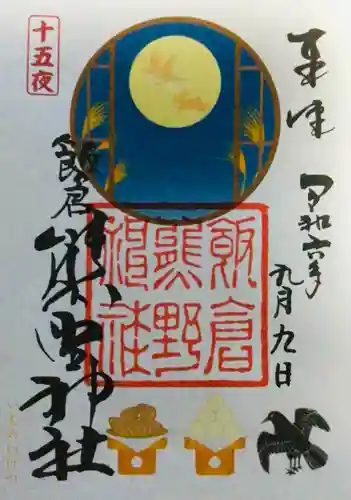 奉拝
令和六年
九月九日
十五夜
飯倉
熊野神社
飯倉
熊野
神社